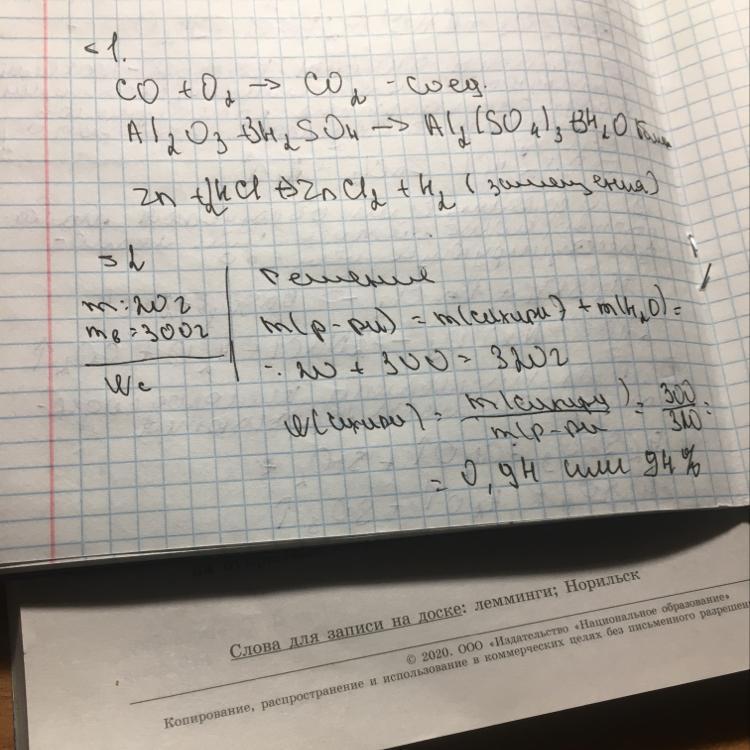 <1.
CO + O₂ → CO₂ - соед.
Al₂O₃ + 3H₂SO₄ → Al₂(SO₄)₃ + 3H₂O
Zn + 2HCl → ZnCl₂ + H₂ (замещения)
з2
m = 20 г
mв = 300 г
Wс
Решение
m(р-ра) = m(сахара) + m(H₂O) =
= 20 + 300 = 320 г
W(сахара) = m(сахара) / m(р-ра = 300 / 320 =
= 0,94 или 94%
Слова для записи на доске: лемминги; Норильск
© 2020. ООО «Издательство «Национальное образование»
Копирование, распространение и использование в коммерческих целях без письменного разрешен